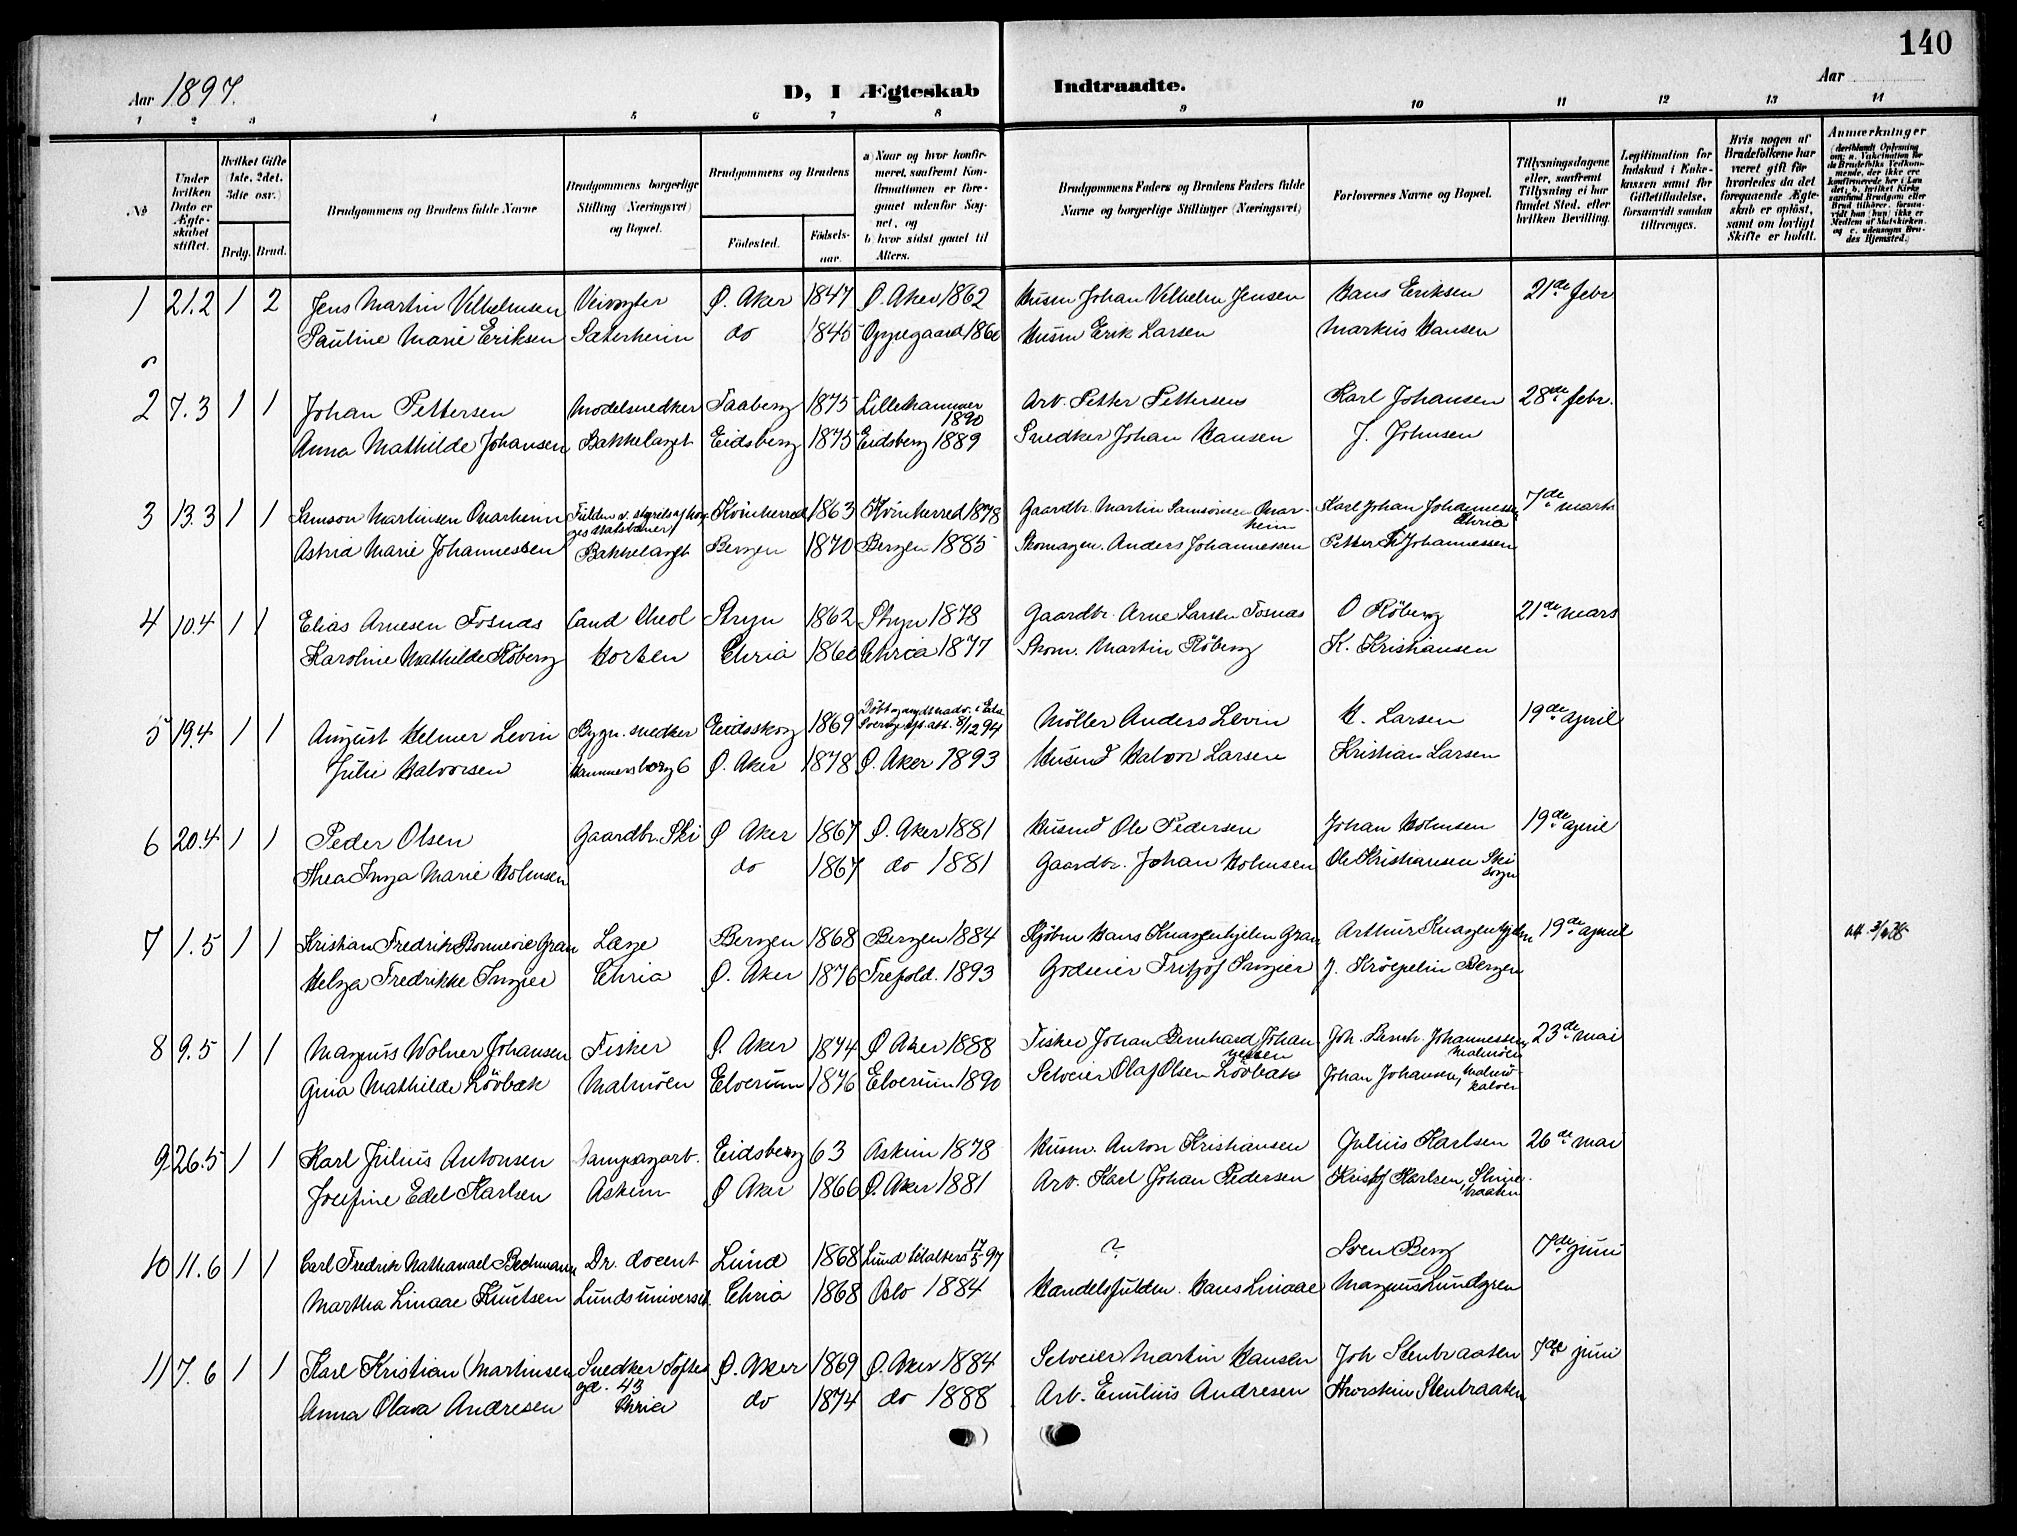 140
Aar 1897.
D, I Ægteskab Indtraadte.
Aar
1 2 3 4 5 6 7 8 9 10 11 12 13 14
No
Under hvilken Dato er Ægteskabet stiftet.
Hvilket Gifte (1ste, 2det, 3die osv.)
Brdg. Brud.
Brudgommens og Brudens fulde Navne
Brudgommens borgerlige Stilling (Næringsvei) og Bopæl.
Brudgommens og Brudens
Fødested.
Fødselsaar.
a) Naar og hvor konfirmeret, saafremt Konfirmationen er foregaaet udenfor Sognet, og
b) hvor sidst gaaet til Alters.
Brudgommens Faders og Brudens Faders fulde Navne og borgerlige Stillinger (Næringsvei)
Forlovernes Navne og Bopæl.
Tillysningsdagene eller, saafremt Tillysning ei har fundet Sted, efter hvilken Bevilling.
Legitimation for Indskud i Enkekassen samt for Giftetilladelse, forsaavidt saadan tiltrænges.
Hvis nogen af Brudefolkene har været gift før hvorledes da det foregaaende Ægteskab er opløst, samt om lovligt Skifte er holdt.
Anmærkninger (deriblandt Oplysning om: a. Vakcination for de Brudefolks Vedkommende, der ikke ere konfirmerede her i Landet; b. hvilket Kirkesamfund Brudgom eller Brud tilhører, forsaavidt han (hun) ikke er Medlem af Statskirken, og c. udensogns Brudes Hjemsted.)
1 21.2 1 2 Jens Martin Vilhelmsen Veivogter Ø. Aker 1847 Ø. Aker 1862 Husm Johan Vilhelm Jensen Hans Eriksen 21de febr
Pauline Marie Eriksen Sæterheim do 1845 Oppegaard 1860 Husm Erik Larsen Markus Hansen
2 7.3 1 1 Johan Pettersen Modelsnedker Faaberg 1875 Lillehammer 1890 Arb. Petter Pettersen Karl Johansen 28de febr.
Anna Mathilde Johansen Bakkelaget Eidsberg 1875 Eidsberg 1889 Snedker Johan Hansen J. Johnsen
3 13.3 1 1 Samson Martinsen Omarheim Fuldm v. styrels af Norges statsbaner Kvinherred 1863 Kvinherred 1878 Gaardbr. Martin Samsonsen Omarheim Karl Johan Johannessen Chria 7de marts
Astrid Marie Johannessen Bakkelaget Bergen 1870 Bergen 1885 Skomagerm. Anders Johannessen Petter Johannessen
4 10.4 1 1 Elias Arnesen Fosnæs Cand theol Stryn 1862 Stryn 1878 Gaardbr. Arne Larsen Fosnæs O Röberg 21de mars
Karoline Mathilde Röberg Horten Chria 1860 Chria 1877 Skom. Martin Röberg K. Kristiansen
5 19.4 1 1 August Helmer Levin Bygn. snedker Eidsskog 1869 i Eda Sverige att. 8/12 94 Møller Anders Levin H. Larsen 19de april
Julie Halvorsen Hammersborg 6 Ø. Aker 1878 Ø. Aker 1893 Husmd Halvor Larsen Kristian Larsen
6 20.4 1 1 Peder Olsen Gaardbr. Ski Ø Aker 1867 Ø. Aker 1881 Husmd Ole Pedersen Johan Holmsen 19de april
Thea Inga Marie Holmsen do 1867 do 1881 Gaardbr. Johan Holmsen Ole Kristiansen Ski sogn
7 1.5 1 1 Kristian Fredrik Bonnevie Gran Læge Bergen 1868 Bergen 1884 Kjøbm Hans Knagenhjelm Gran Arthur Knagenhjelm 19de april
Helga Fredrikke Ingier Chria Ø. Aker 1876 Trefold. 1893 Godseier Fritjof Ingier J. Kröepelin Bergen
8 9.5 1 1 Magnus Wolner Johansen Fisker Ø. Aker 1874 Ø Aker 1888 Fisker Johan Bernhard Johannessen Joh. Bernh. Johannessen Malmöen 23de mai
Gina Mathilde Lövbæk Malmöen Elverum 1876 Elverum 1890 Selveier Olaf Olsen Lövbæk Johan Johansen, Malmökalven
9 26.5 1 1 Karl Julius Antonsen Dampsagarb. Eidsberg 63 Askim 1878 Husm. Anton Kristiansen Julius Karlsen 26de mai
Josefine Edel Karlsen Askim Ø Aker 1866 Ø. Aker 1881 Arb. Karl Johan Pedersen Kristof Karlsen,
10 11.6 1 1 Carl Fredrik Nathanael Bechmann Dr. docent Lund 1868 Lund tilalters 17/5 97 ? Sven Berg 7de juni
Martha Linaae Knutsen Lunds universit. Chria 1868 Oslo 1884 Handelsfuldm. Hans Linaae Magnus Lundgren
11 7.6 1 1 Karl Kristian Martinsen Snedker Toftes gd. 43 Ø. Aker 1869 Ø. Aker 1884 Selveier Martin Hansen Joh Stenbraaten 7de juni
Anna Olava Andresen Chria do 1874 do 1888 Arb. Emilius Andresen Thorstein Stenbraaten